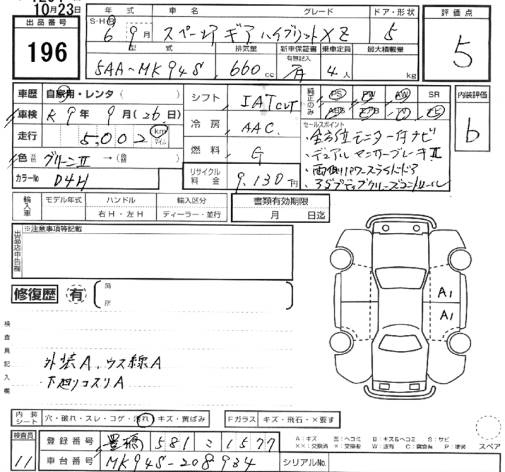 10月23日
年式 車名 グレード ドア・形状 評価点
出品番号 196
S・H・R 6年9月 スペーシア ギア ハイブリッドXZ 5 5
型式 排気量 新車保証書 乗車定員 最大積載量
5AA-MK94S 660cc 有無記入 有 4人
車歴 自家用・レンタ
シフト IATCVT
純正のみ PS PW SR 内装評価
車検 R9年9月(26日)
冷房 AAC
b
走行 5,002 km マイル
燃料 G
セールスポイント
・全方位モニター付ナビ
・デュアルセンサーブレーキⅡ
・両側パワースライドドア
・アダプティブクルーズコントロール
色 グリーンⅡ →( 色)
カラーNo D4H
リサイクル料金 9,130円
輸入車 モデル年式 ハンドル 輸入区分 書類有効期限
年 右H・左H ディーラー・並行 月 日迄
出品店申告欄 ※注意事項等記載
修復歴 有
箇所
A1
A1
検査員記入欄
外装A、ウス線A
下廻リコスリA
内装シート 穴・破れ・スレ・コゲ・汚れ・キズ・黄ばみ Fガラス キズ・飛石・X要す
A:キズ E:エクボ B:キズ&ヘコミ S:サビ
スペア
検査員 11
登録番号 豊橋 581 こ 1577
車台番号 MK94S-208934 シリアルNo.